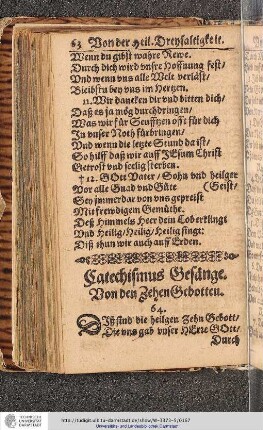 63 Von der Heil. Dreyfaltigkeit.
Wenn du gibst wahre Rewe.
Durch dich wird vnsre Hoffnung fest/
Vnd wenn vns alle Welt verläst/
Bleibstu bey vns im Hertzen.
11. Wir dancken dir vnd bitten dich/
Daß es ja mög durchdringen/
Was wir für Seufftzen offt für dich
In vnser Noth fürbringen/
Vnd wenn die letzte Stund da ist/
So hilff daß wir auff JEsum Christ
Getrost vnd seelig sterben.
†12. GOtt Vater/ Sohn vnd heilger
Vor alle Gnad vnd Güte (Geist/
Sey jmmerdar von vns gepreist
Mit frewdigem Gemüthe.
Deß Himmels Heer dein Lob erklingt
Vnd Heilig/Heilig/Heilig singt:
Diß thun wir auch auff Erden.
Catechismus Gesänge.
Von den Zehen Gebotten.
64.
DIß sind die heilgen Zehn Gebott/
Die vns gab vnser HErre GOtt/
Durch
http://tudigit.ulb.tu-darmstadt.de/show/W-3373-5/0167
Universitäts- und Landesbibliothek Darmstadt